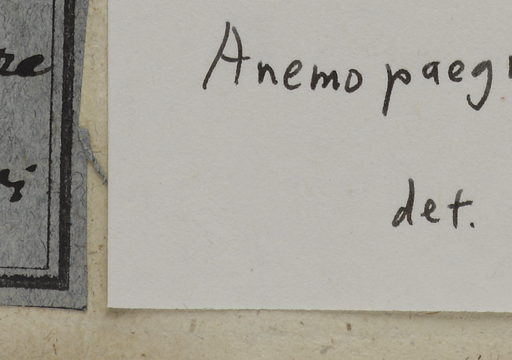 Anemopaeg
det.